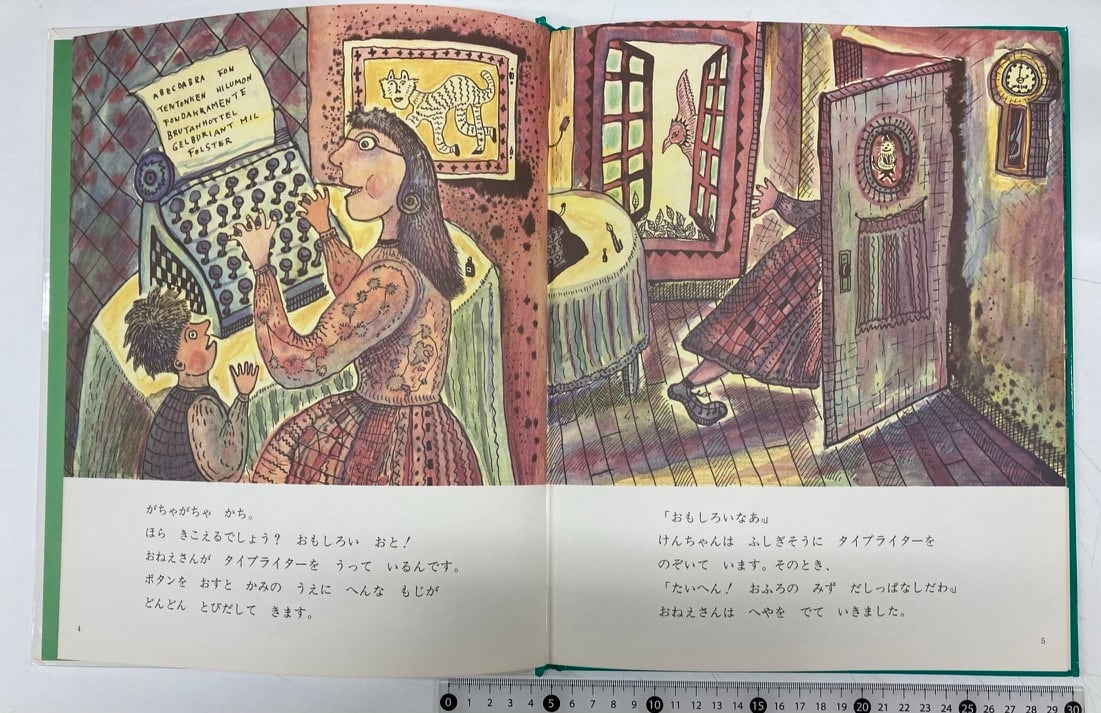 ABECDABRA FON
TENTONKEN HILUMON
FONDAKRAMENTE
BRUTANHOTTEL
GELBURIANT MIL
FOLSTER
がちゃがちゃ かち。
ほら きこえるでしょう? おもしろい おと!
おねえさんが タイプライターを うって いるんです。
ボタンを おすと かみの うえに へんな もじが
どんどん とびだして きます。
4
「おもしろいなあ」
けんちゃんは ふしぎそうに タイプライターを
のぞいて います。そのとき、
「たいへん! おふろの みず だしっぱなしだわ」
おねえさんは へやを でて いきました。
5
0 1 2 3 4 5 6 7 8 9 10 11 12 13 14 15 16 17 18 19 20 21 22 23 24 25 26 27 28 29 30